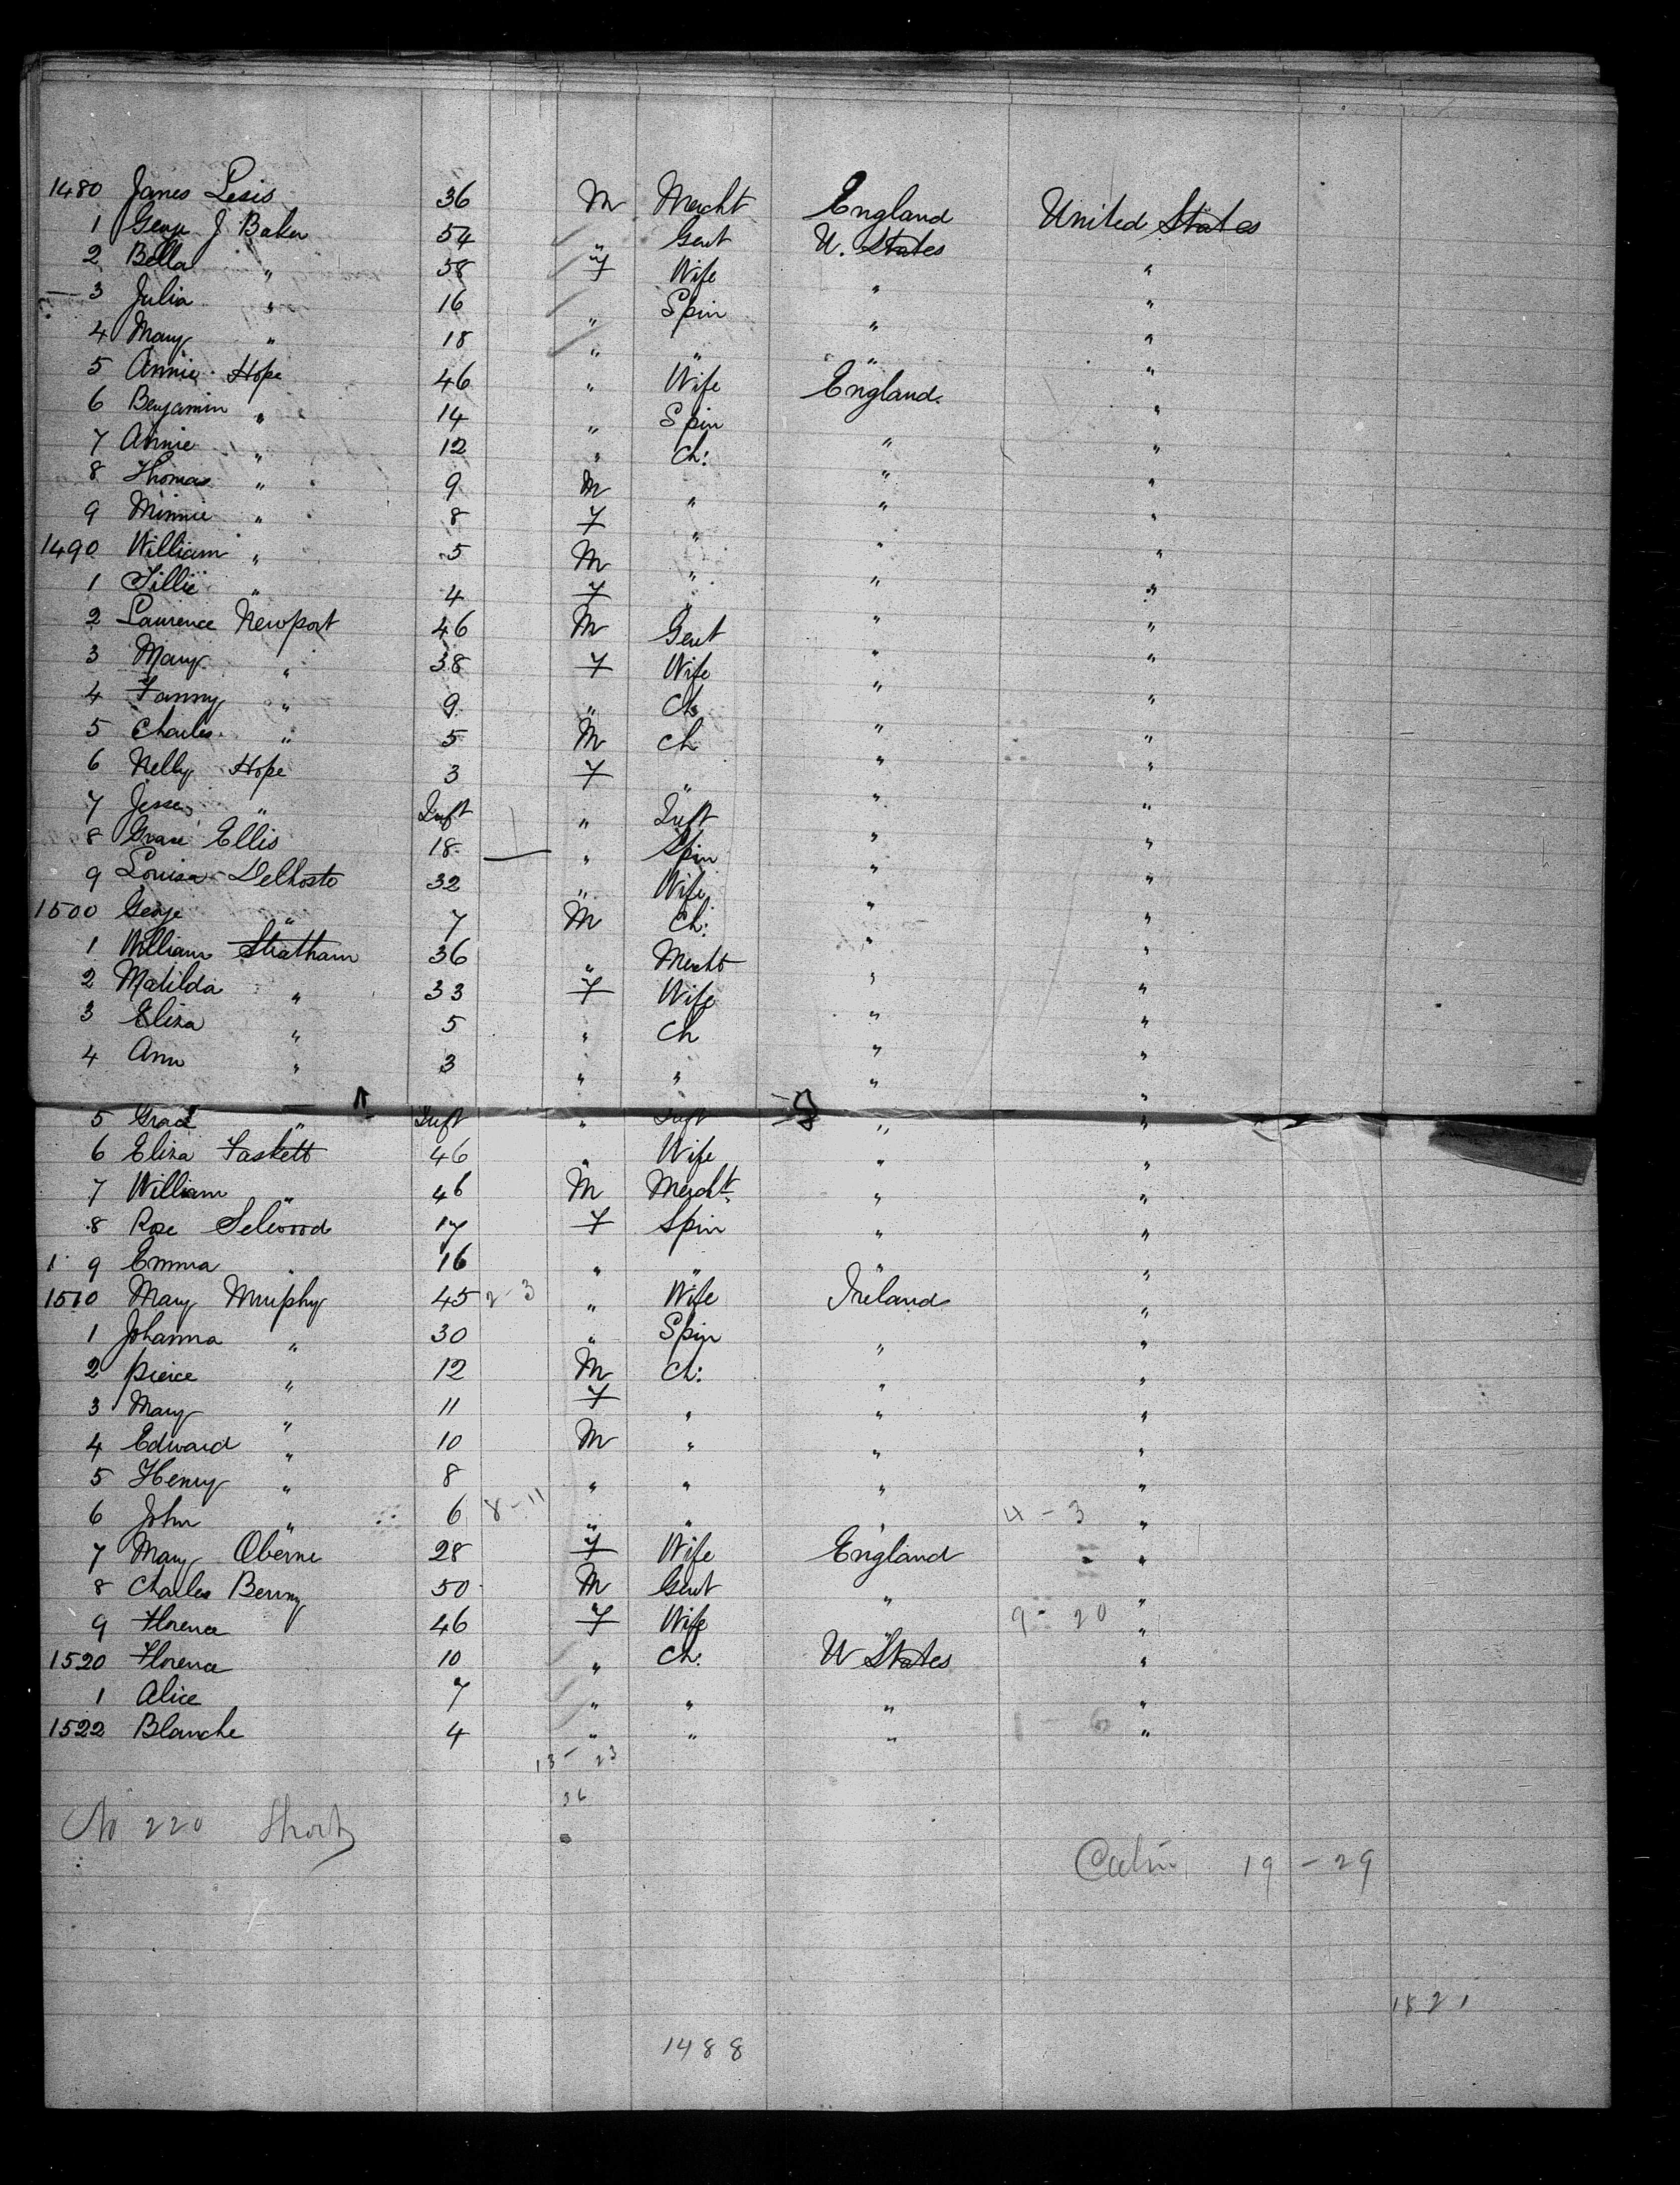 1480 James Lesis 36 M Mercht England United States
1 George J Baker 54 " Gent U. States "
2 Bella " 58 F Wife " "
3 Julia " 16 " Spin " "
4 Mary " 18 " " " "
5 Annie Hope 46 " Wife England "
6 Benjamin " 14 " Spin " "
7 Annie " 12 " Ch: " "
8 Thomas " 9 M " " "
9 Minnie " 8 F " " "
1490 William " 5 M " " "
1 Tillie " 4 F " " "
2 Laurence Newport 46 M Gent " "
3 Mary " 38 F Wife " "
4 Fanny " 9 " Ch " "
5 Charles " 5 M Ch " "
6 Nelly Hope 3 F " " "
7 Jesse " Inft " Inft " "
8 Grace Ellis 18 " Spin " "
9 Louisa Delhoste 32 " Wife " "
1500 George " 7 M Ch: " "
1 William Statham 36 " Mercht " "
2 Matilda " 33 F Wife " "
3 Eliza " 5 " Ch " "
4 Ann " 3 " " " "
5 Grace " Inft " Inft " "
6 Eliza Faskett 46 " Wife " "
7 William " 46 M Mercht " "
8 Rose Selwood 17 F Spin " "
9 Emma " 16 " " " "
1510 Mary Murphy 45 2-3 " Wife Ireland "
1 Johanna " 30 " Spin " "
2 Pierce " 12 M Ch: " "
3 Mary " 11 F " " "
4 Edward " 10 M " " "
5 Henry " 8 " " " "
6 John " 6 8-11 " " " 4-3 "
7 Mary Oberne 28 F Wife England "
8 Charles Benny 50 M Gent " "
9 Florence 46 F Wife " 9-20 "
1520 Florence 10 " Ch: U States "
1 Alice 7 " " " "
1522 Blanche 4 " " " 1-6 "
13-23
36
No 220 Short
Cabin 19-29
1521
1488